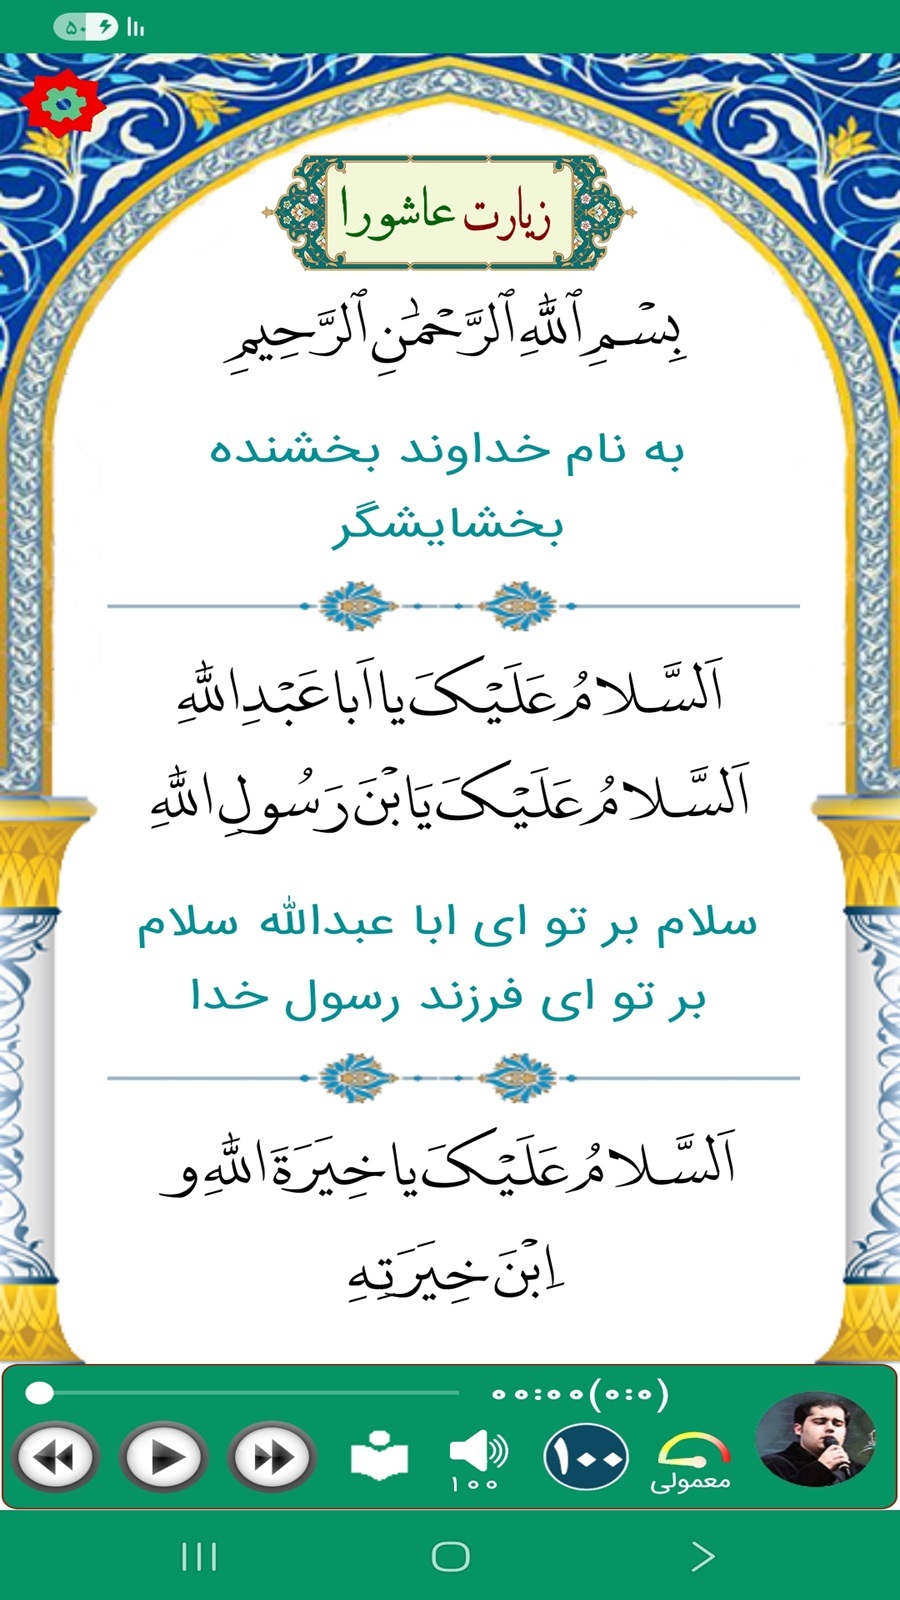 ۵۰
زیارت عاشورا
بِسْمِ ٱللَّهِ ٱلرَّحْمَٰنِ ٱلرَّحِیمِ
به نام خداوند بخشنده
بخشایشگر
اَلسَّلامُ عَلَیْکَ یا اَبا عَبْدِاللَّهِ
اَلسَّلامُ عَلَیْکَ یَابْنَ رَسُولِ اللَّهِ
سلام بر تو ای ابا عبدالله سلام
بر تو ای فرزند رسول خدا
اَلسَّلامُ عَلَیْکَ یا خِیَرَةَ اللَّهِ و
اِبْنَ خِیَرَتِهِ
۰۰:۰۰(۰:۰)
۱۰۰
۱۰۰
معمولی